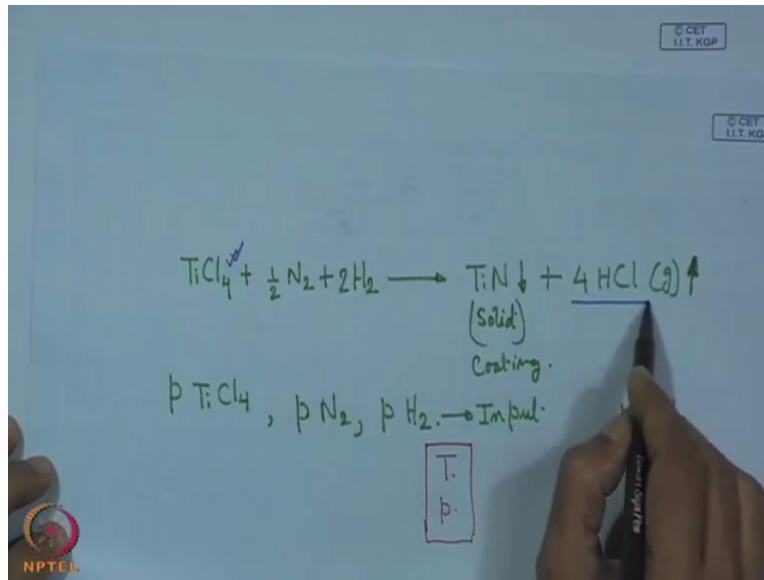 © CET
I.I.T. KGP
© CET
I.I.T. KG
TiCl₄ + ½ N₂ + 2H₂ → TiN ↓ + 4 HCl (g) ↑
(Solid)
Coating.
p TiCl₄, p N₂, p H₂. → Input.
T.
p.
NPTEL